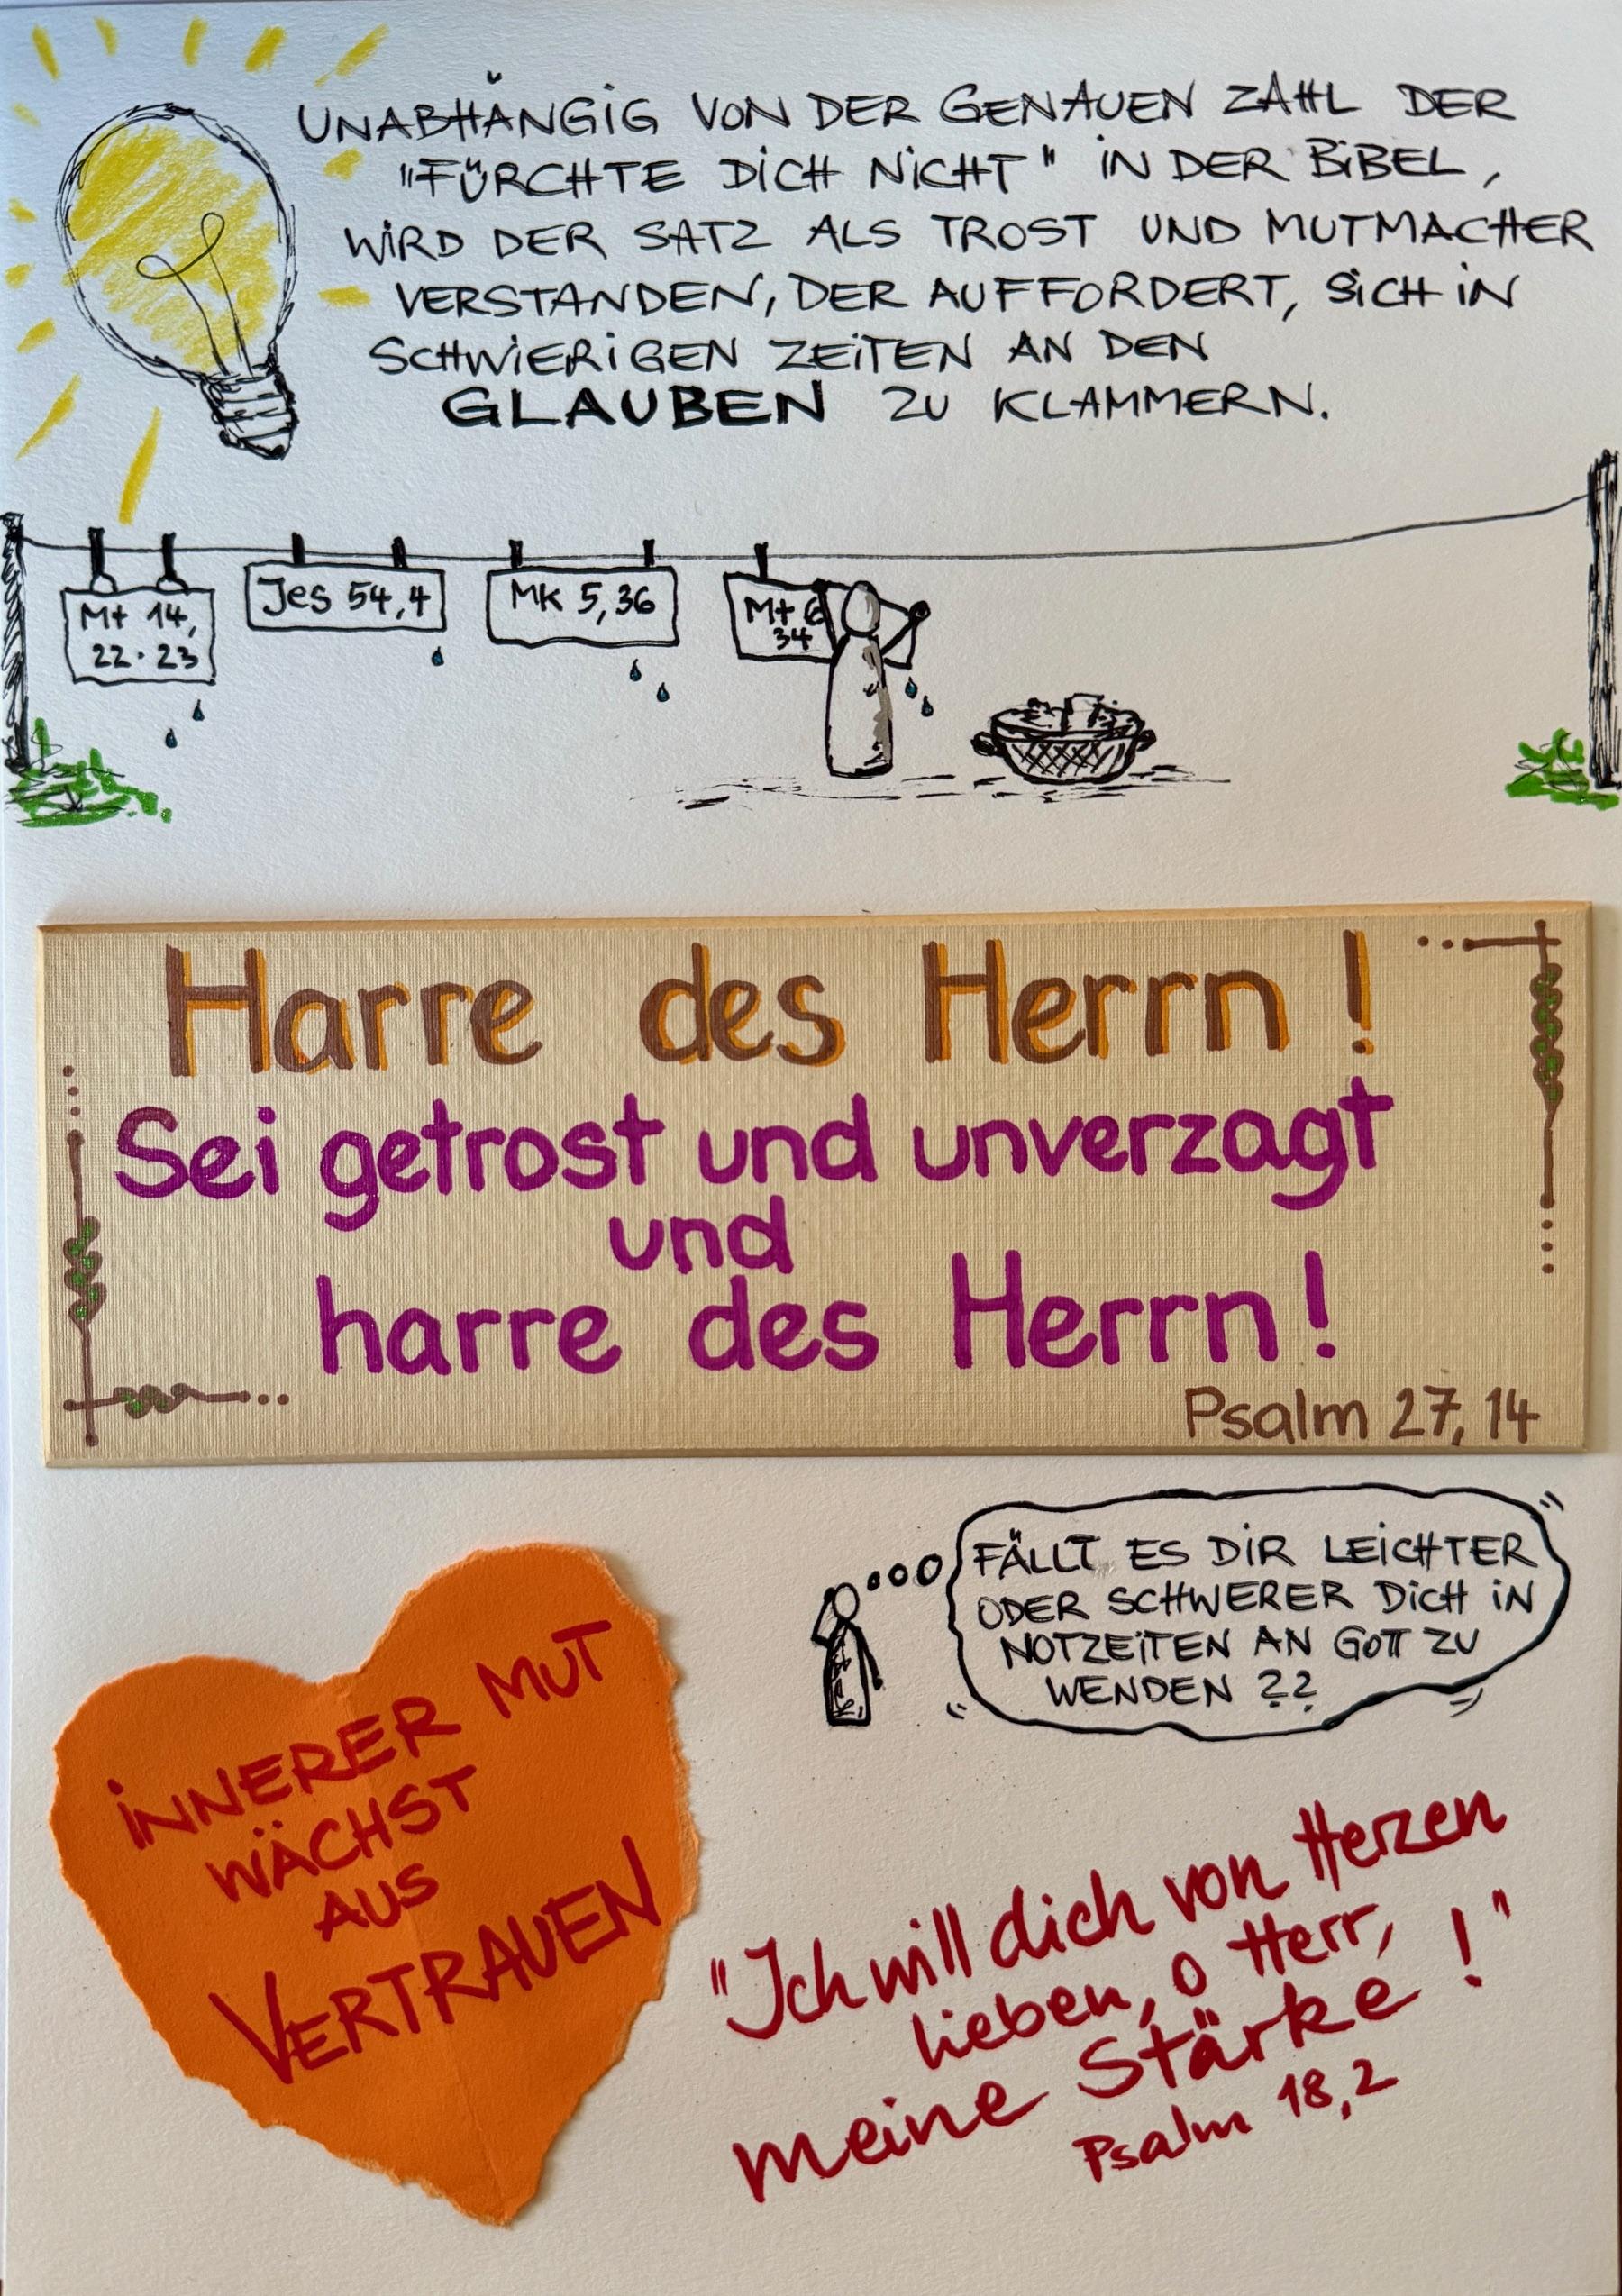 UNABHÄNGIG VON DER GENAUEN ZAHL DER
"FÜRCHTE DICH NICHT" IN DER BIBEL,
WIRD DER SATZ ALS TROST UND MUTMACHER
VERSTANDEN, DER AUFFORDERT, SICH IN
SCHWIERIGEN ZEITEN AN DEN
GLAUBEN ZU KLAMMERN.
Mt 14,
22-23
Jes 54,4
Mk 5,36
Mt 6
34
Harre des Herrn!
Sei getrost und unverzagt
und
harre des Herrn!
Psalm 27,14
FÄLLT ES DIR LEICHTER
ODER SCHWERER DICH IN
NOTZEITEN AN GOTT ZU
WENDEN ??
INNERER MUT
WÄCHST
AUS
VERTRAUEN
"Ich will dich von Herzen
lieben, o Herr,
meine Stärke!"
Psalm 18,2